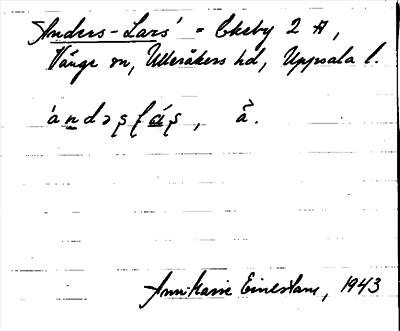 Anders-Lars' = Ekeby 2 A,
Vänge sn, Ulleråkers hd, Uppsala l.
ándəʂɭáʂ, ä̀.
Ann-Marie, 1943